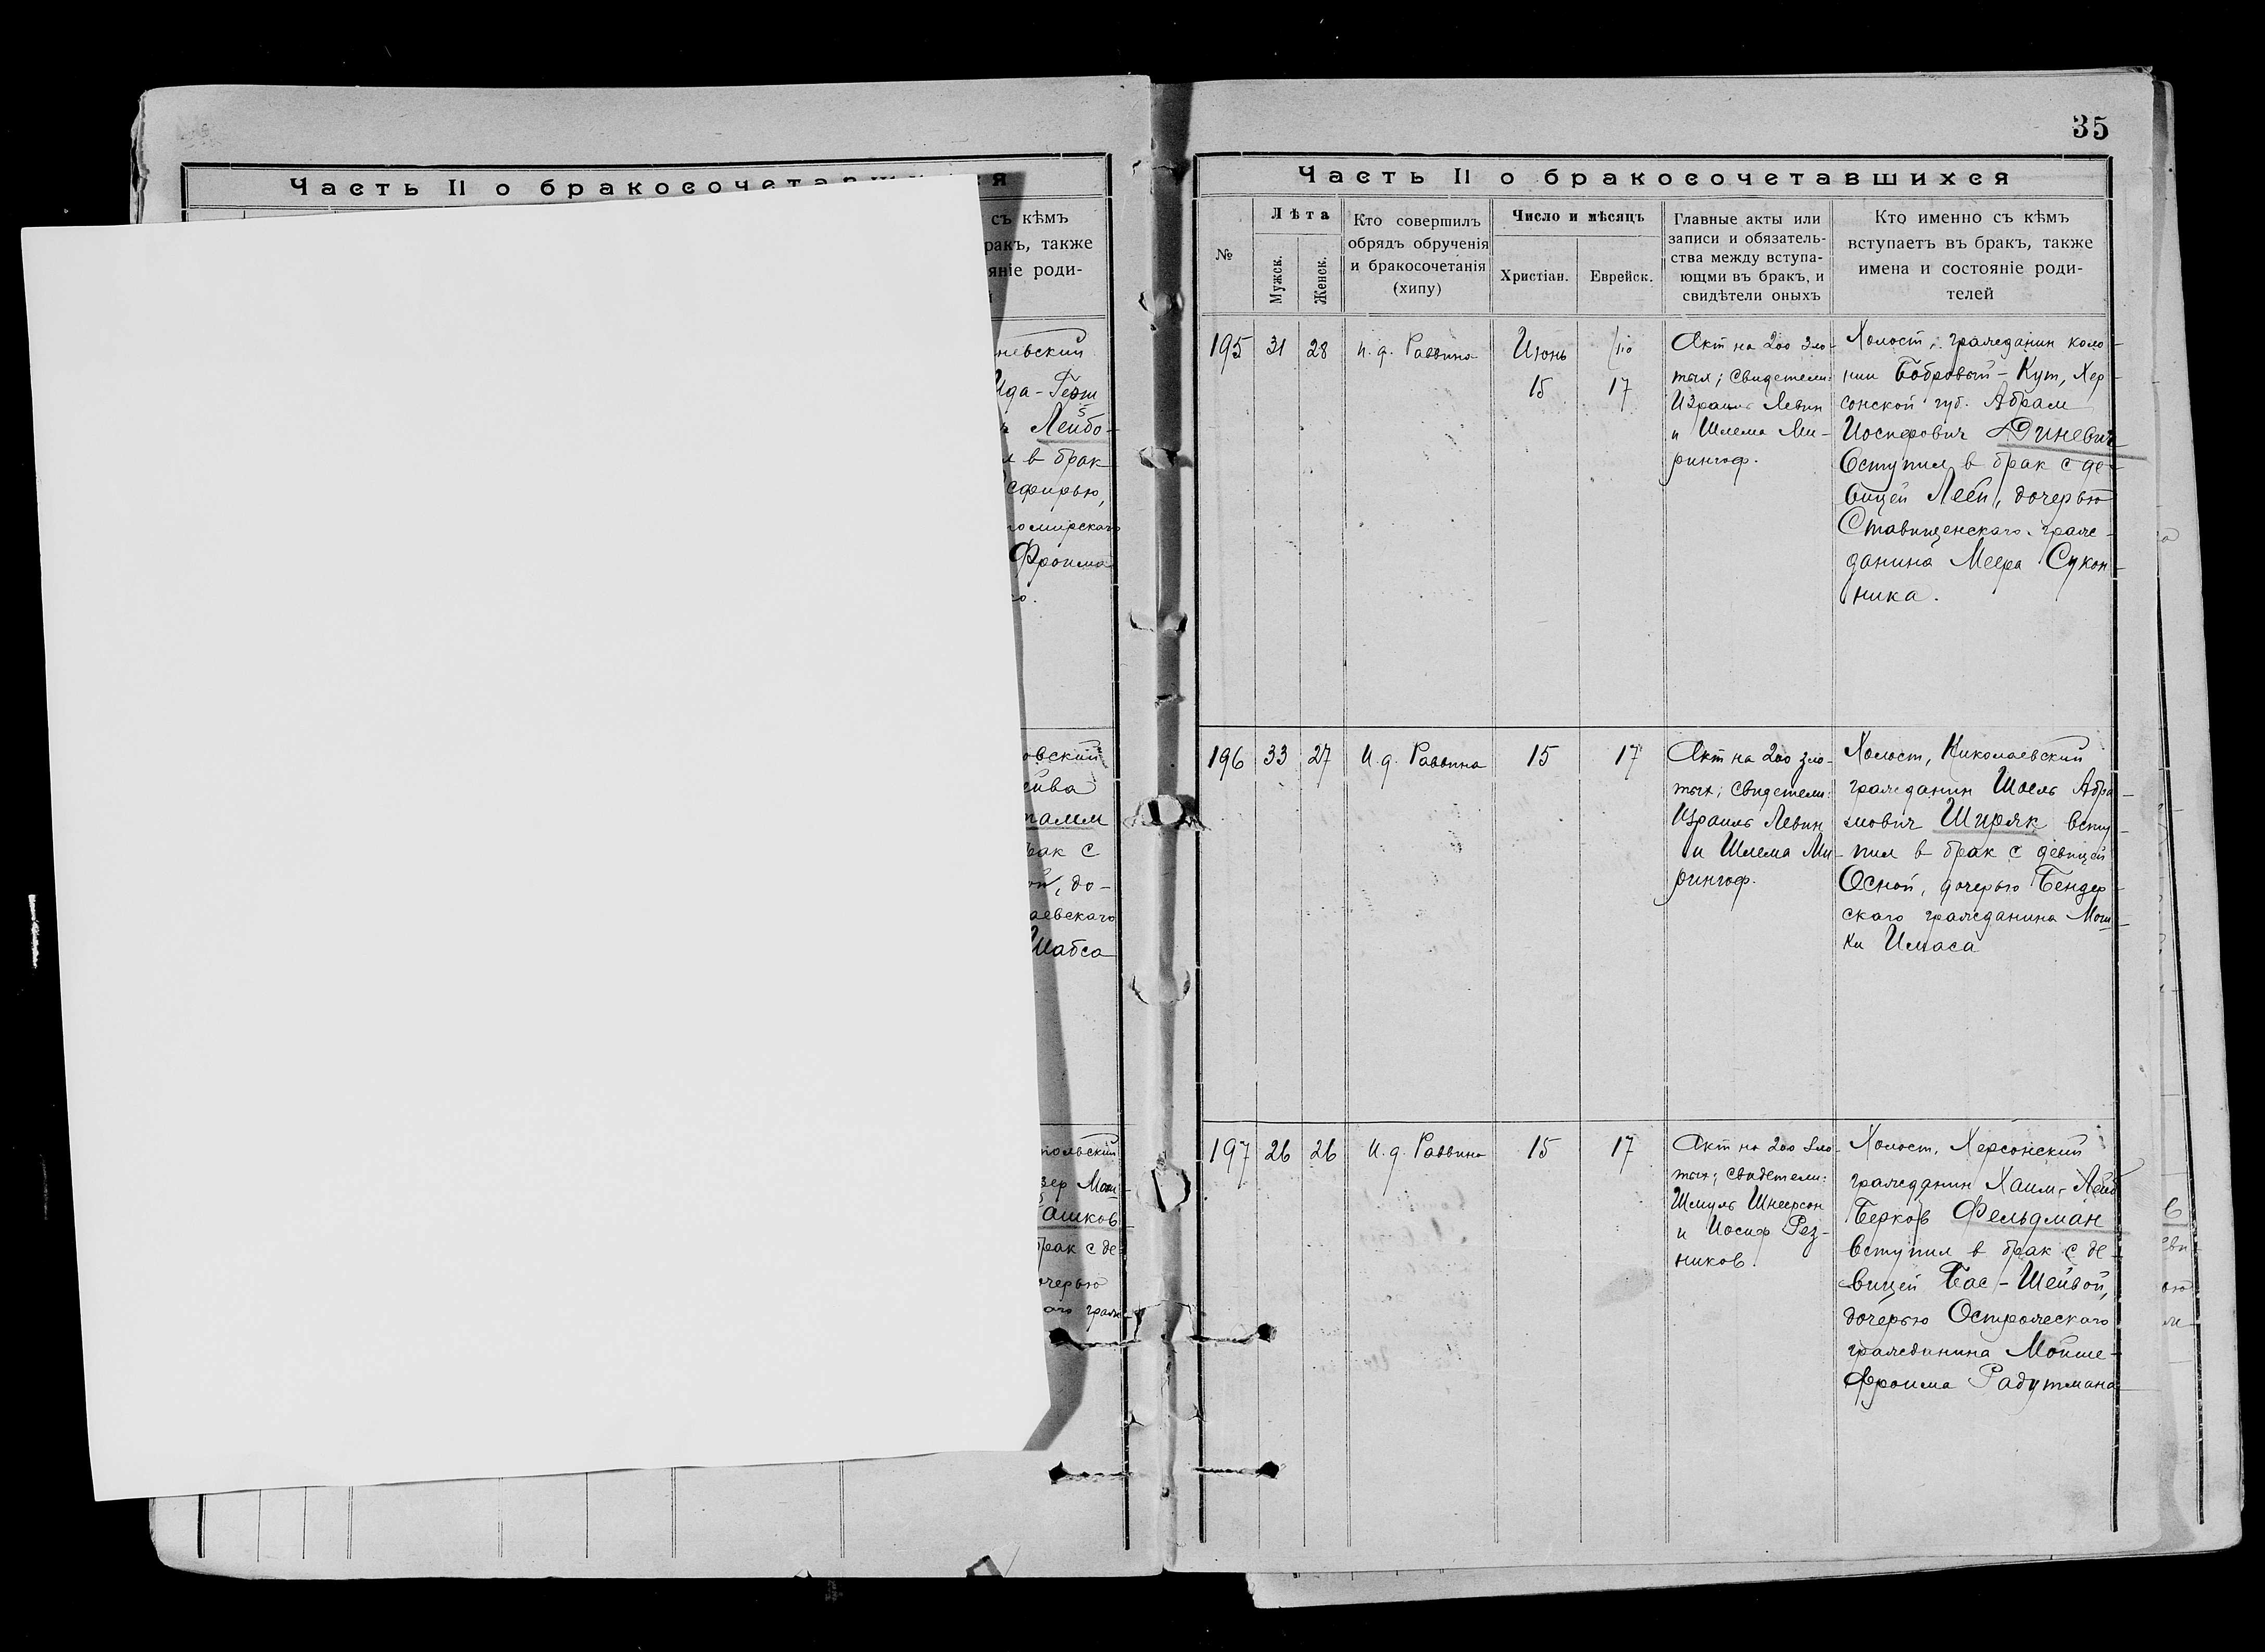 35
Часть II о бракосочетавшихся
съ кѣмъ
ракъ, также
яніе роди-
невский
Лейбо-
в брак
сфирью,
Фроима
овский
рак с
до-
аевскаго
Шабса
польский
зер Мош-
ашков
брак с де-
очерью
Часть II о бракосочетавшихся
№
Лѣта
Мужск.
Женск.
Кто совершилъ
обрядъ обрученія
и бракосочетанія
(хипу)
Число и мѣсяцъ
Христіан.
Еврейск.
Главные акты или
записи и обязатель-
ства между вступа-
ющми въ бракъ, и
свидѣтели оныхъ
Кто именно съ кѣмъ
вступаетъ въ бракъ, также
имена и состояніе роди-
телей
195 31 28 И. д. Раввина Июнь
15 17
Акт на 200 зло-
тых; свидетели:
Израиль Левин
и Шлема Ми-
рингоф.
Холост, гражданин коло-
нии Бобровый-Кут, Хер-
сонской губ. Абрам
Иосифович Диневич
вступил в брак с де-
вицей Леей, дочерью
Ставищенскаго граж-
данина Меера Сукон-
ника.
196 33 27 И. д. Раввина 15 17
Акт на 200 зло-
тых; свидетели:
Израиль Левин
и Шлема Ми-
рингоф.
Холост, Николаевский
гражданин Шоель Абра-
мович Ширяк всту-
пил в брак с девицей
Осной, дочерью Бендер-
скаго гражданина Мош-
ки Имаса
197 26 26 И. д. Раввина 15 17
Акт на 200 зло-
тых; свидетели:
Шмуль Шнеерсон
и Иосиф Рез-
ников.
Холост, Херсонский
гражданин Хаим-Лейб
Берков Фельдман
вступил в брак с де-
вицей Бас-Шейвой,
дочерью Острожскаго
гражданина Мойше-
Фроима Радутмана